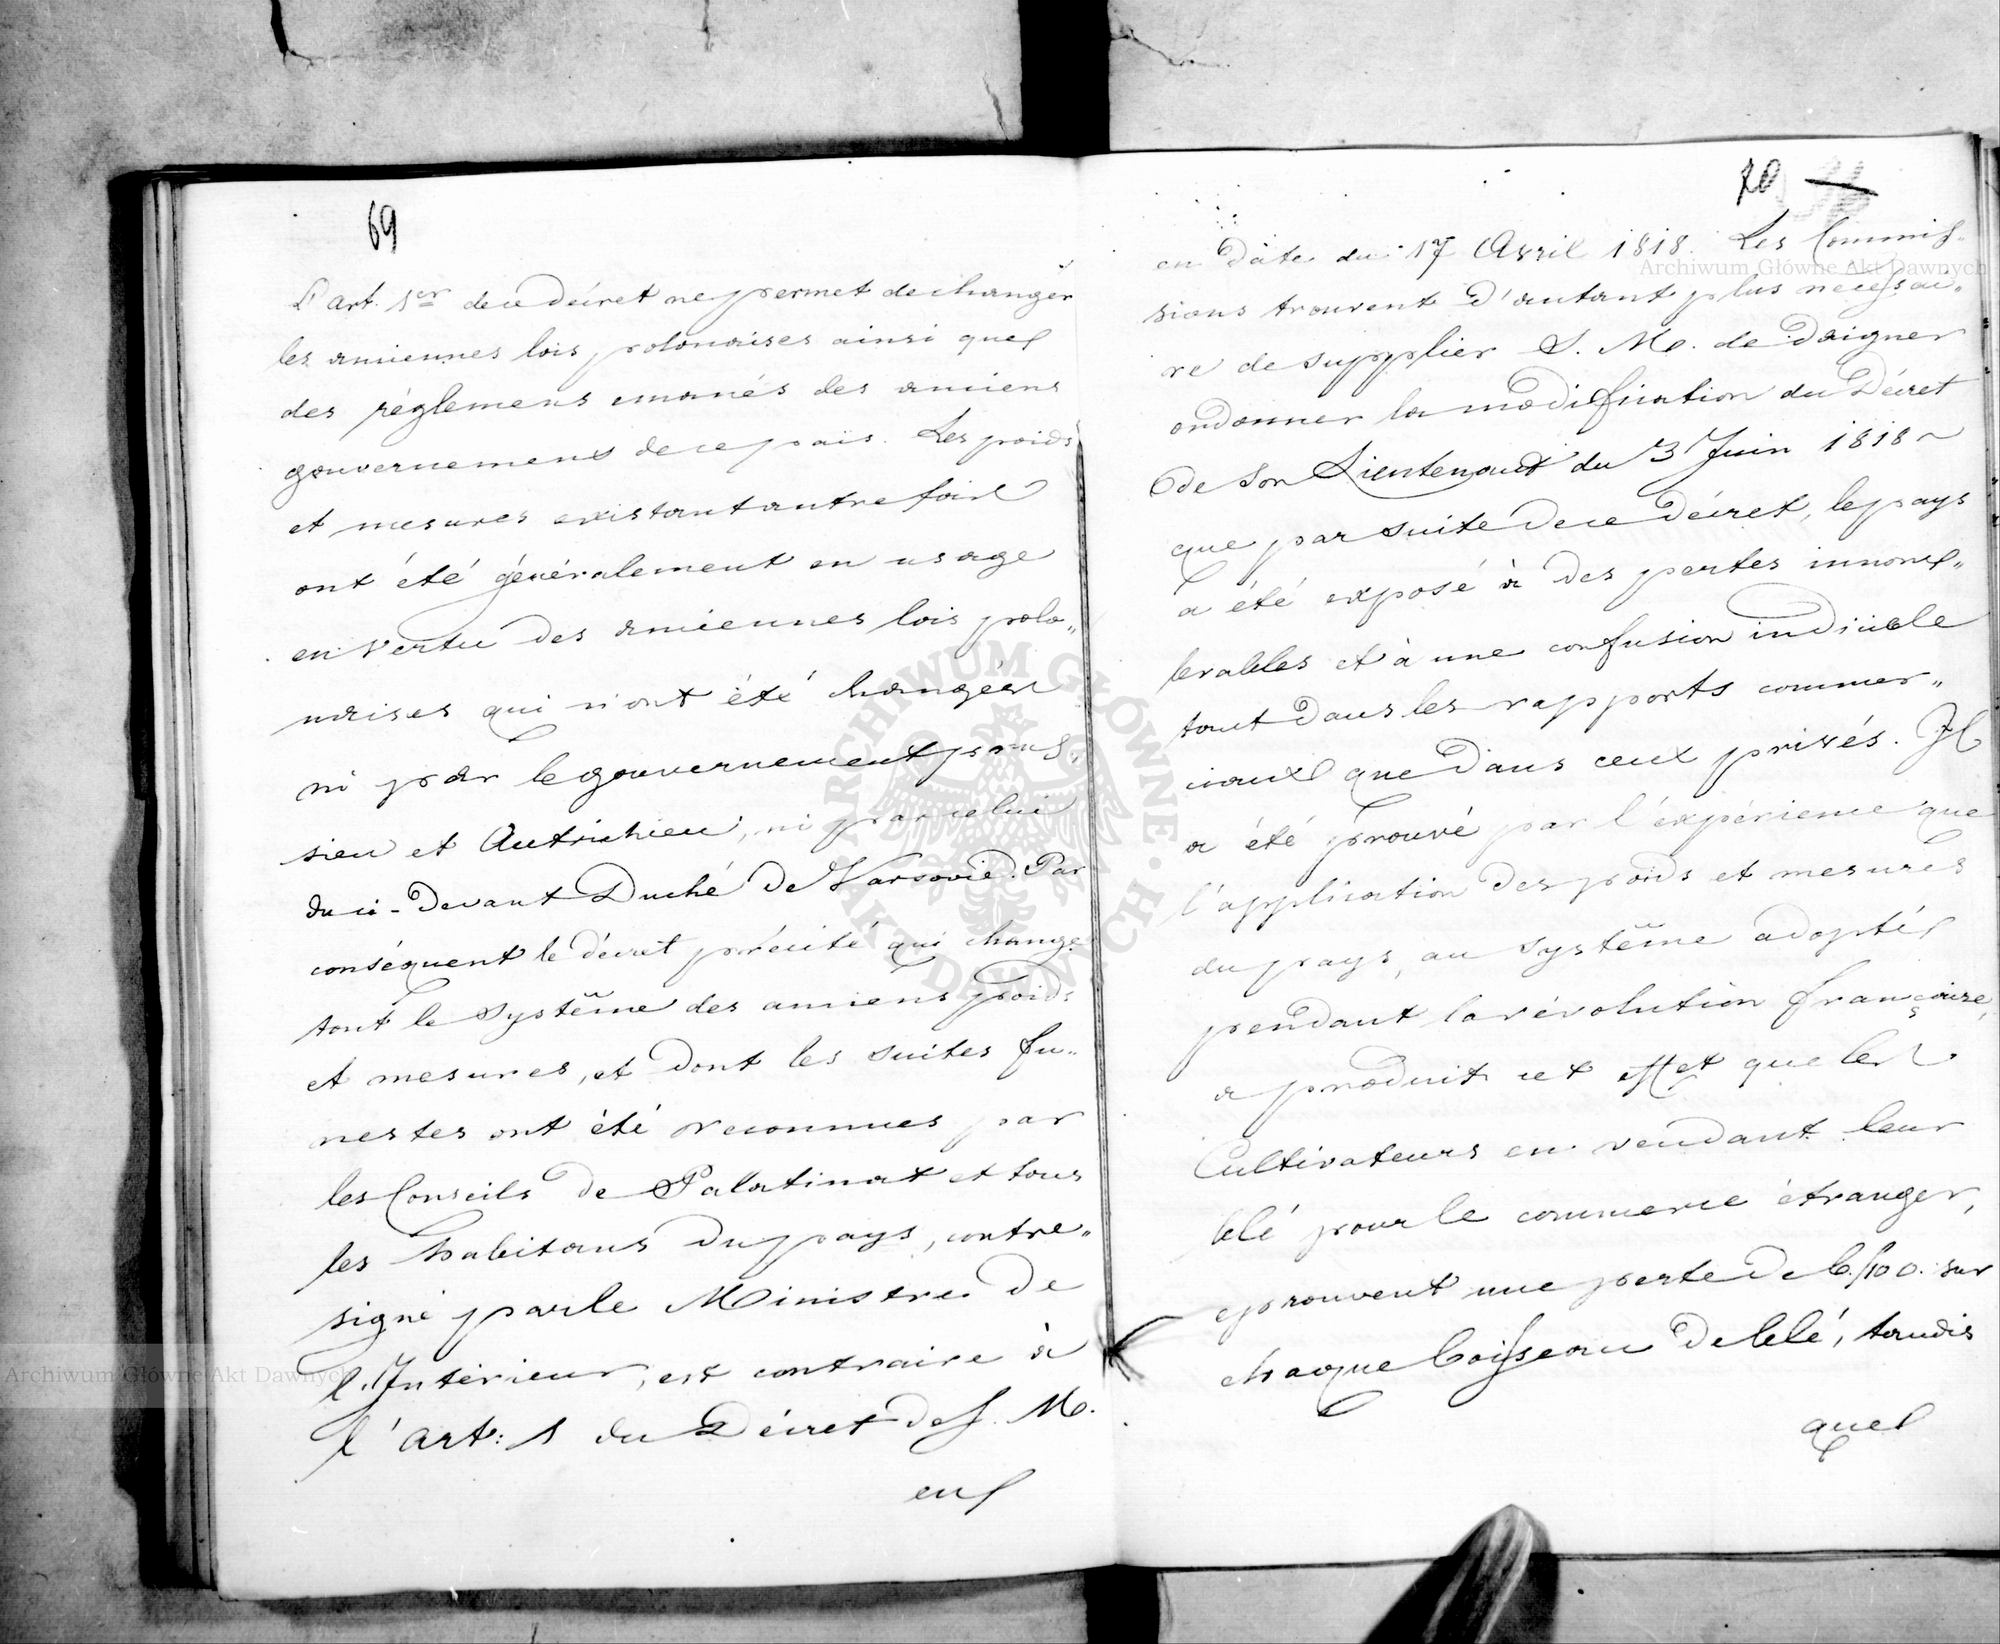 69
L'art. 1er de ce décret ne permet de changer
les anciennes lois polonaises ainsi que
des réglemens emanés des anciens
gouvernemens de ce païs. Les poids
et mesures existant autrefois
ont été généralement en usage
en vertu des anciennes lois polo„
naises qui n'ont été changées
ni par le gouvernement prus„
sien et Autrichien, ni par celui
du ci-devant Duché de Varsovie. Par
conséquent le décret précité qui change
tout le système des anciens poids
et mesures, et dont les suites fu„
nestes ont été reconnues par
les Conseils de Palatinat et tous
les habitans du pays, contre„
signé par le Ministre de
l'Intérieur, est contraire à
l'art: 1 du Décret de S. M.
en
70
en date du 17 Avril 1818. Les Commis„
sions trouvent d'autant plus nécessai„
re de supplier S. M. de daigner
ordonner la modification du Décret
de Son Lieutenant du 3 Juin 1818
que par suite de ce décret, le pays
a été exposé à des pertes innom„
brables et à une confusion indicible
tout dans les rapports commer„
ciaux que dans ceux privés. Il
a été prouvé par l'expérience que
l'application des poids et mesures
du pays, au système adopté
pendant la révolution française,
a produit cet effet que les
Cultivateurs en vendant leur
blé pour le commerce étranger,
eprouvent une perte de 6/100. sur
chaque boisseau de blé, tandis
que
Archiwum Główne Akt Dawnych
Archiwum Główne Akt Dawnych
ARCHIWUM GŁÓWNE AKT DAWNYCH